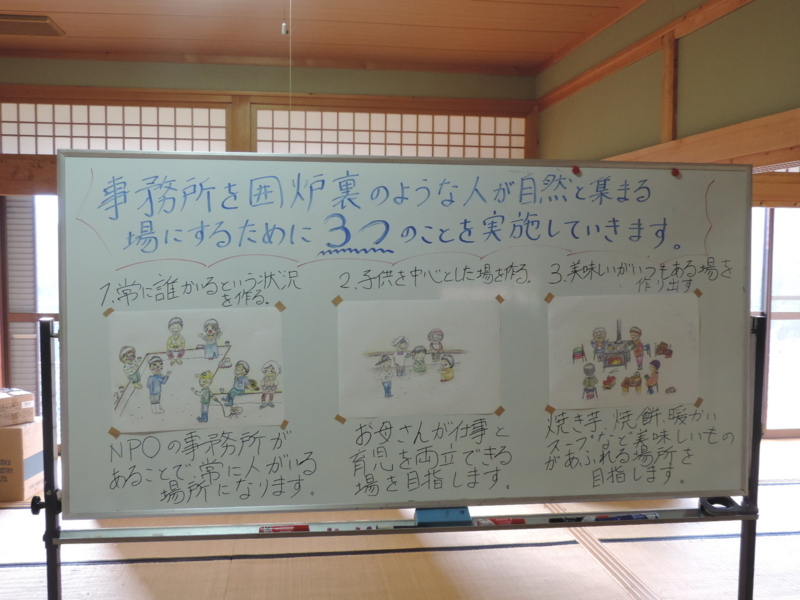 事務所を囲炉裏のような人が自然と集まる
場にするために3つのことを実施していきます。
1.常に誰かいるという状況
を作る。
NPOの事務所が
あることで常に人がいる
場所になります。
2.子供を中心とした場を作る。
お母さんが仕事と
育児を両立できる
場を目指します。
3.美味しいがいつもある場を
作り出す
焼き芋、焼餅、暖かい
スープなど美味しいもの
があふれる場所を
目指します。